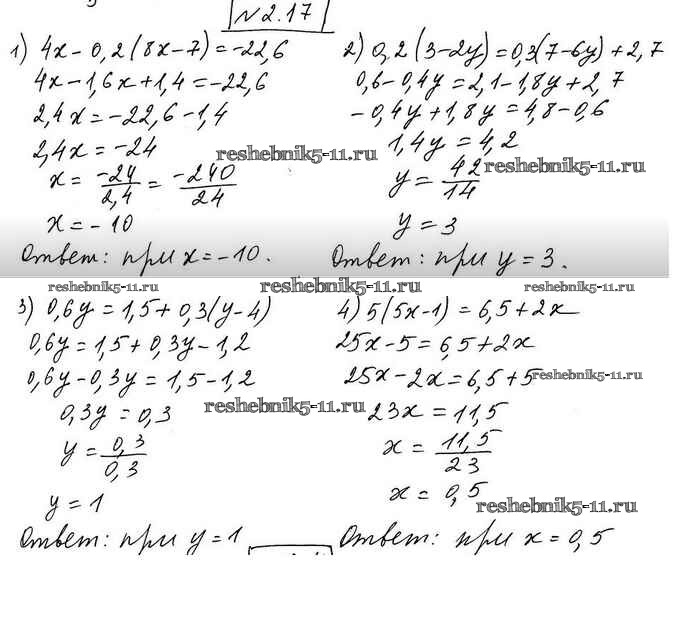 №2.17
1) 4x - 0,2(8x-7) = -22,6
4x - 1,6x + 1,4 = -22,6
2,4x = -22,6 - 1,4
2,4x = -24
x = -24/2,4 = -240/24
x = -10
Ответ: при x = -10.
2) 0,2(3-2y) = 0,3(7-6y) + 2,7
0,6 - 0,4y = 2,1 - 1,8y + 2,7
-0,4y + 1,8y = 4,8 - 0,6
1,4y = 4,2
y = 42/14
y = 3
Ответ: при y = 3.
reshebnik5-11.ru
reshebnik5-11.ru
reshebnik5-11.ru
reshebnik5-11.ru
reshebnik5-11.ru
3) 0,6y = 1,5 + 0,3(y-4)
0,6y = 1,5 + 0,3y - 1,2
0,6y - 0,3y = 1,5 - 1,2
0,3y = 0,3
y = 0,3/0,3
y = 1
Ответ: при y = 1
4) 5(5x-1) = 6,5 + 2x
25x - 5 = 6,5 + 2x
25x - 2x = 6,5 + 5
23x = 11,5
x = 11,5/23
x = 0,5
Ответ: при x = 0,5
reshebnik5-11.ru
reshebnik5-11.ru
reshebnik5-11.ru